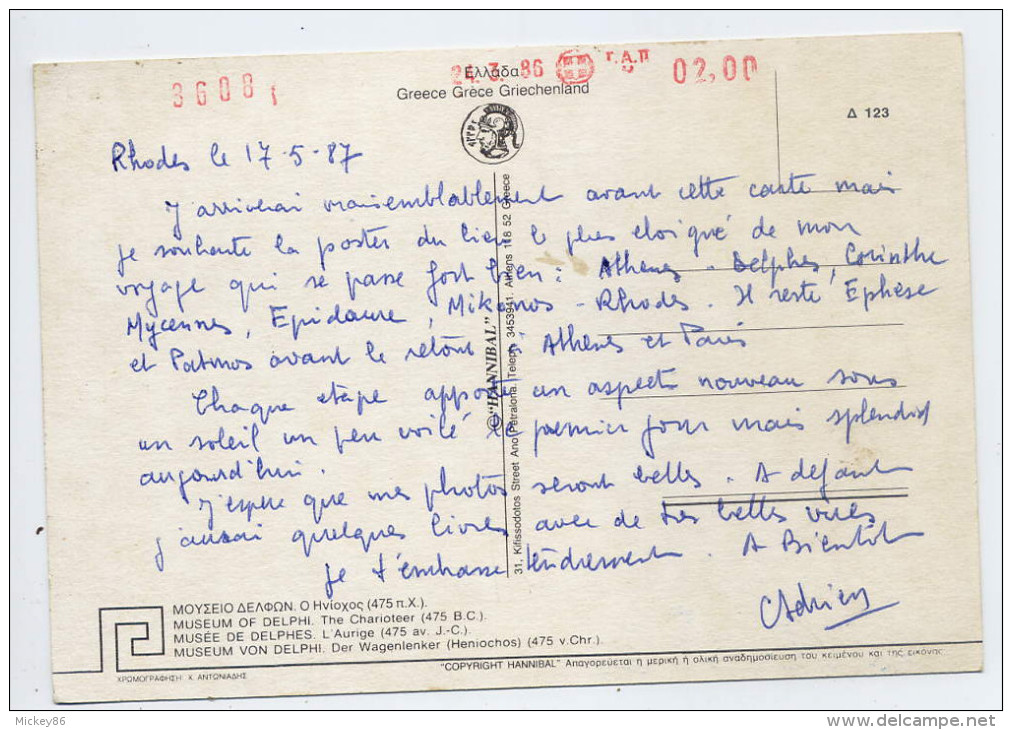 36081
24.3.86
Γ.Α.Π
02,00
Ελλάδα
Greece Grèce Griechenland
Δ 123
Rhodes le 17-5-87
J'arriverai vraisemblablement avant cette carte mais
je souhaite la poster du lieu le plus eloigné de mon
voyage qui se passe fort bien : Athenes - Delphes, Corinthe
Mycennes, Epidaure, Mikonos - Rhodes. Il reste Ephese
et Patmos avant le retour Athenes et Paris
Chaque etape apporte un aspect nouveau sous
un soleil un peu voilé le premier jour mais splendid
aujourd'hui.
J'espere que mes photos seront belles. A defaut
j'aurai quelques livres avec de tres belles vues
Je t'embrasse tendrement. A Bientôt
Adrien
31, Kifissodotos Street Ano Petralona, Teleph. 3453941. Athens 118 52 Greece
© "HANNIBAL"
ΜΟΥΣΕΙΟ ΔΕΛΦΩΝ. Ο Ηνίοχος (475 π.Χ.).
MUSEUM OF DELPHI. The Charioteer (475 B.C.).
MUSÉE DE DELPHES. L'Aurige (475 av. J.-C.).
MUSEUM VON DELPHI. Der Wagenlenker (Heniochos) (475 v.Chr.).
"COPYRIGHT HANNIBAL" Απαγορεύεται η μερική ή ολική αναδημοσίευση του κειμένου και της εικόνας.
ΧΡΩΜΟΓΡΑΦΗΣΗ Χ. ΑΝΤΩΝΙΑΔΗΣ
Mickey86
www.delcampe.net